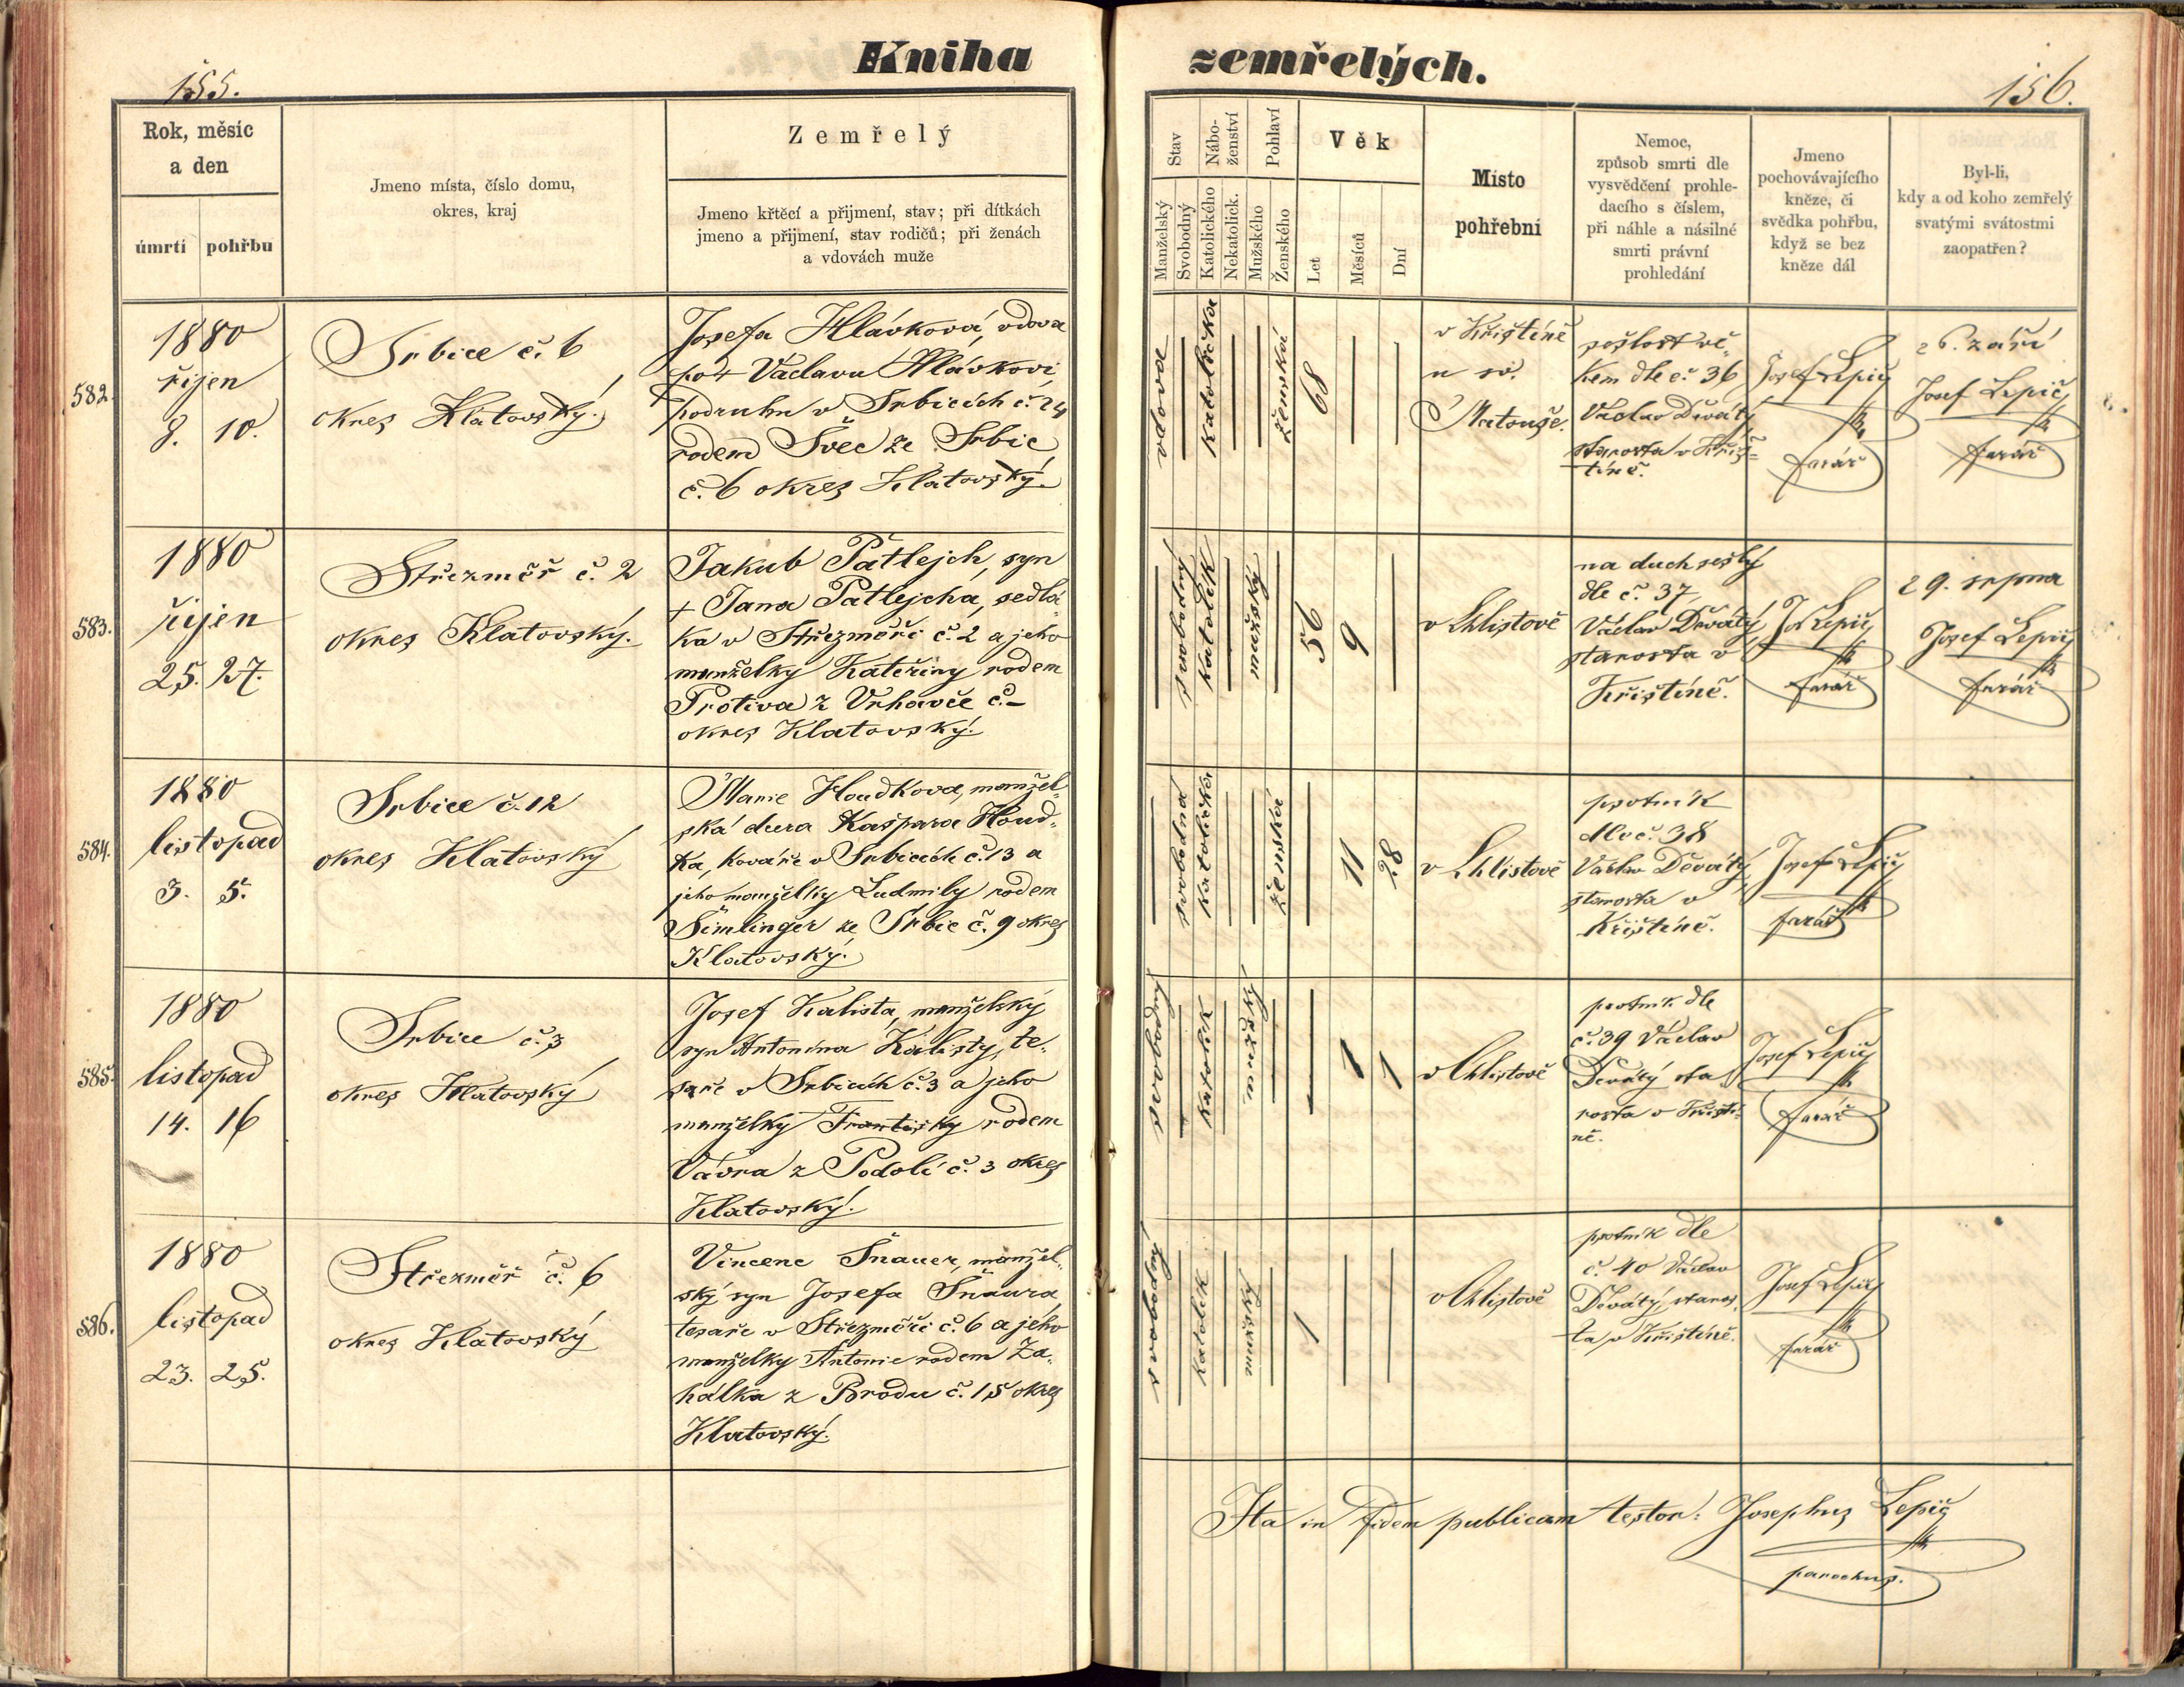 Kniha zemřelých.
155.
156.
Rok, měsíc
a den
úmrtí pohřbu
Jmeno místa, číslo domu,
okres, kraj
Zemřelý
Jmeno křtěcí a přijmení, stav; při dítkách
jmeno a přijmení, stav rodičů; při ženách
a vdovách muže
Stav
Manželský
Svobodný
Nábo-
ženství
Katolického
Nekatolick.
Pohlaví
Mužského
Ženského
Věk
Let
Měsíců
Dní
Místo
pohřební
Nemoc,
způsob smrti dle
vysvědčení prohle-
dacího s číslem,
při náhle a násilné
smrti právní
prohledání
Jmeno
pochovávajícího
kněze, či
svědka pohřbu,
když se bez
kněze dál
Byl-li,
kdy a od koho zemřelý
svatými svátostmi
zaopatřen?
582.
1880
říjen
8. 10.
Srbice č. 6
okres Klatovský.
Josefa Hlávková, vdova
po + Václavu Hlávkovi,
podruhu v Srbicích č. 24
rodem Švec ze Srbic
č. 6 okres Klatovský.
vdova
katolička
ženská
68
v Křištíně
u sv.
Matouše.
sešlost vě-
kem dle č. 36
Václav Děvátý
starosta v Křiš-
tíně.
Josef Lepič
farář
26. září
Josef Lepič
farář
583.
1880
říjen
25. 27.
Střezměř č. 2
okres Klatovský.
Jakub Patlejch, syn
+ Jana Patlejcha, sedlá-
ka v Střezměři č. 2 a jeho
manželky Kateřiny rodem
Protiva z Vrhavče č. –
okres Klatovský.
svobodný
katolík
mužský
56
9
v Chlistově
na duch sešlý
dle č. 37
Václav Děvátý
starosta v
Křištíně.
Jos Lepič
farář
29. srpna
Josef Lepič
farář
584.
1880
listopad
3. 5.
Srbice č. 12
okres Klatovský
Marie Houdkova, manžel-
ská dcera Kašpara Houd-
ka, kováře v Srbicích č. 13 a
jeho manželky Ludmily rodem
Šimlinger ze Srbic č. 9 okres
Klatovský.
svobodná
katolička
ženská
11
28
v Chlistově
psotník
dle č. 38
Václav Děvátý,
starosta v
Křištíně.
Josef Lepič
farář
585.
1880
listopad
14. 16
Srbice č. 3
okres Klatovský
Josef Kalista, manželský
syn Antonína Kalisty, te-
saře v Srbicích č. 3 a jeho
manželky Františky rodem
Vávra z Podolí č. 3 okres
Klatovský.
svobodný
katolík
mužský
1
1
v Chlistově
psotník dle
č. 39 Václav
Děvátý sta-
rosta v Křiští-
ně.
Josef Lepič
farář
586.
1880
listopad
23. 25.
Střezměř č. 6
okres Klatovský
Vincenc Šnauer, manžel-
ský syn Josefa Šnaura
tesaře v Střezměři č. 6 a jeho
manželky Antonie rodem Za-
hálka z Brodu č. 15 okres
Klatovský.
svobodný
katolík
mužský
1
v Chlistově
psotník dle
č. 40 Václav
Děvátý, staros-
ta v Křištíně.
Josef Lepič
farář
Ita in fidem publicam testor: Josephus Lepič
parochus.